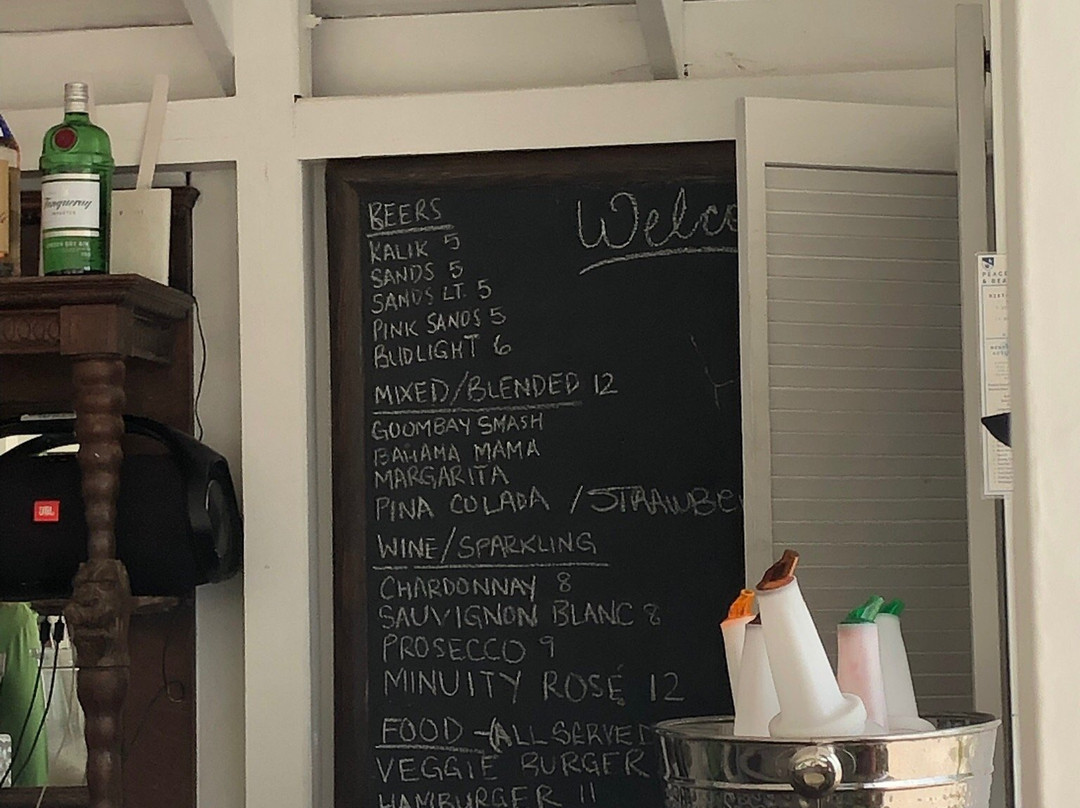 BEERS
KALIK 5
SANDS 5
SANDS LT. 5
PINK SANDS 5
BUDLIGHT 6
MIXED/BLENDED 12
GOOMBAY SMASH
BAHAMA MAMA
MARGARITA
PINA COLADA /STRAWBE
WINE/SPARKLING
CHARDONNAY 8
SAUVIGNON BLANC 8
PROSECCO 9
MINUITY ROSÉ 12
FOOD - ALL SERVED
VEGGIE BURGER
HAMBURGER 11
Welco
Tanqueray
IMPORTED
JBL
PEACE
& BEA